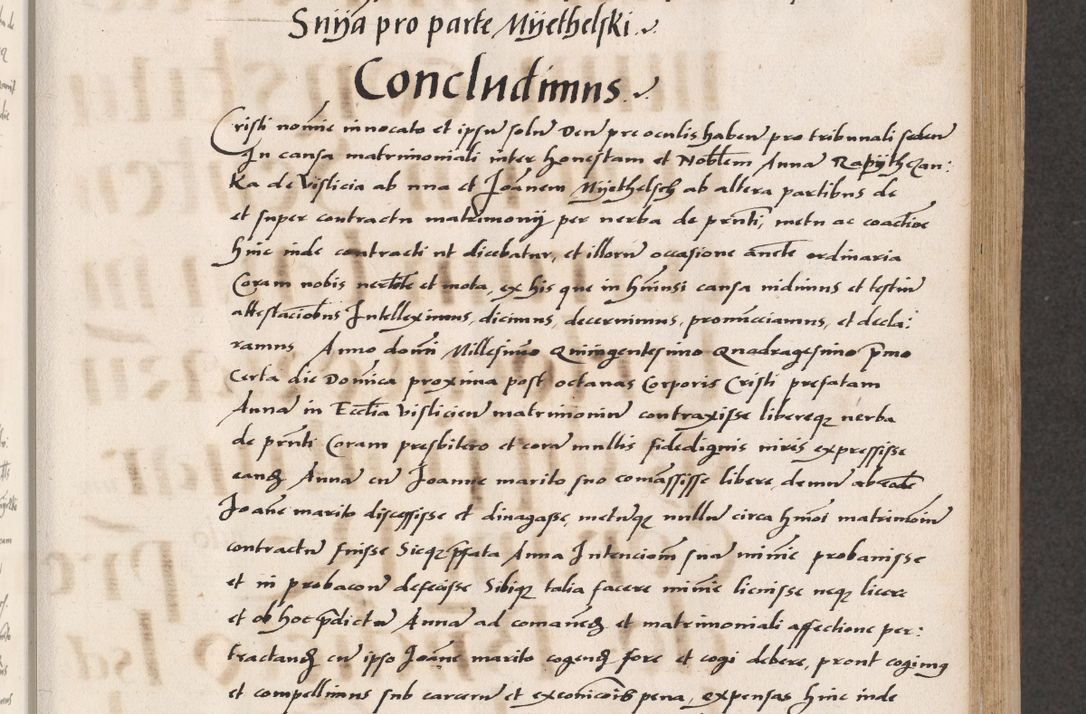 Snÿa pro parte Mÿethelski
Concludimus
Cristi nomine innocato et ipsum solum Deum pre oculis haben pro tribunali seden
In causa matrimoniali inter honestam et Noblem Anna Rapÿthczan:
ka de Vislicia ab una et Joãnem Mÿethelsch ab altera partibus de
et super contractu matrimonÿ per uerba de pñti, metu ac coactiõe
hinc inde contracti ut dicebatur, et illorum occasione ancte ordinaria
Coram nobis uertete et mota, ex his que in huiusi causa uidimus et testium
attestaciõbus Intelleximus, dicimus, decernimus, pronũcciamus, et decla:
ramus Anno domni Millesimo Quingentesimo Quadragesimo pmo
certa die Domica proxima post octauas Corporis Cristi prefatam
Anna in Ecclia Vislicien matrimonium contraxisse libereq uerba
de pñti Coram presbitero et coram multis fidedignis uiris expressisse
eandem Anna cum Joanne marito suo comãssisse libere, demum ab eode
Joãne marito discessisse et diuagasse, metuqz nullum circa hmõi matrimoium
contractum fuisse Sicqz pfata Anna Intencionm suam minie probauisse
et in probacone defecisse Sibiqz talia facere minie licuisse neqz licere
et ob hoc pdictam Anna ad comanendum et matrimoniali affectione per:
tractandum cum ipso Joãne marito cogendam fore et cogi debere, prout cogimus
et compellimus sub carcerum et exconicõis pena, expensas hinc inde